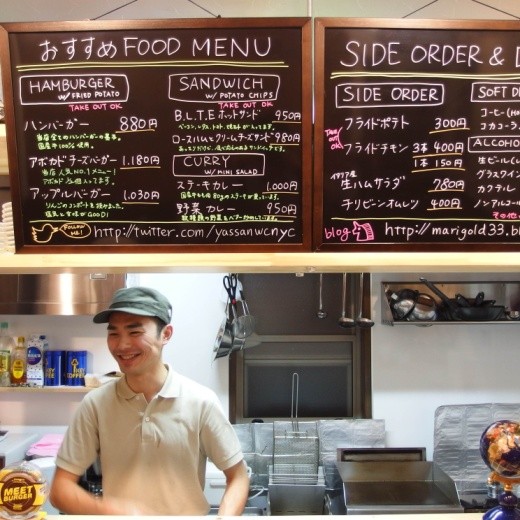 おすすめ FOOD MENU
HAMBURGER
w/ FRIED POTATO
TAKE OUT OK
ハンバーガー 880円
国産牛100%使用。
アボカドチーズバーガー 1.180円
当店人気NO.1メニュー!
アップルバーガー 1.030円
SANDWICH
w/ POTATO CHIPS
TAKE OUT OK
B.L.T.E ホットサンド 950円
ロースハムとクリームチーズサンド 980円
CURRY
w/ MINI SALAD
ステーキカレー 1.000円
野菜カレー 950円
FOLLOW ME!
http://twitter.com/yassanwcnyc
SIDE ORDER & D
SIDE ORDER
TAKE OUT OK
フライドポテト 300円
フライドチキン 3本 400円
1本 150円
イタリア産
生ハムサラダ 780円
チリビーンオムレツ 400円
SOFT D
コーヒー(H
コカコーラ
ALCOHO
生ビール(
グラスワイン
カクテル
ノンアルコール
その他
blog
http://marigold33.bl
MEET
BURGER